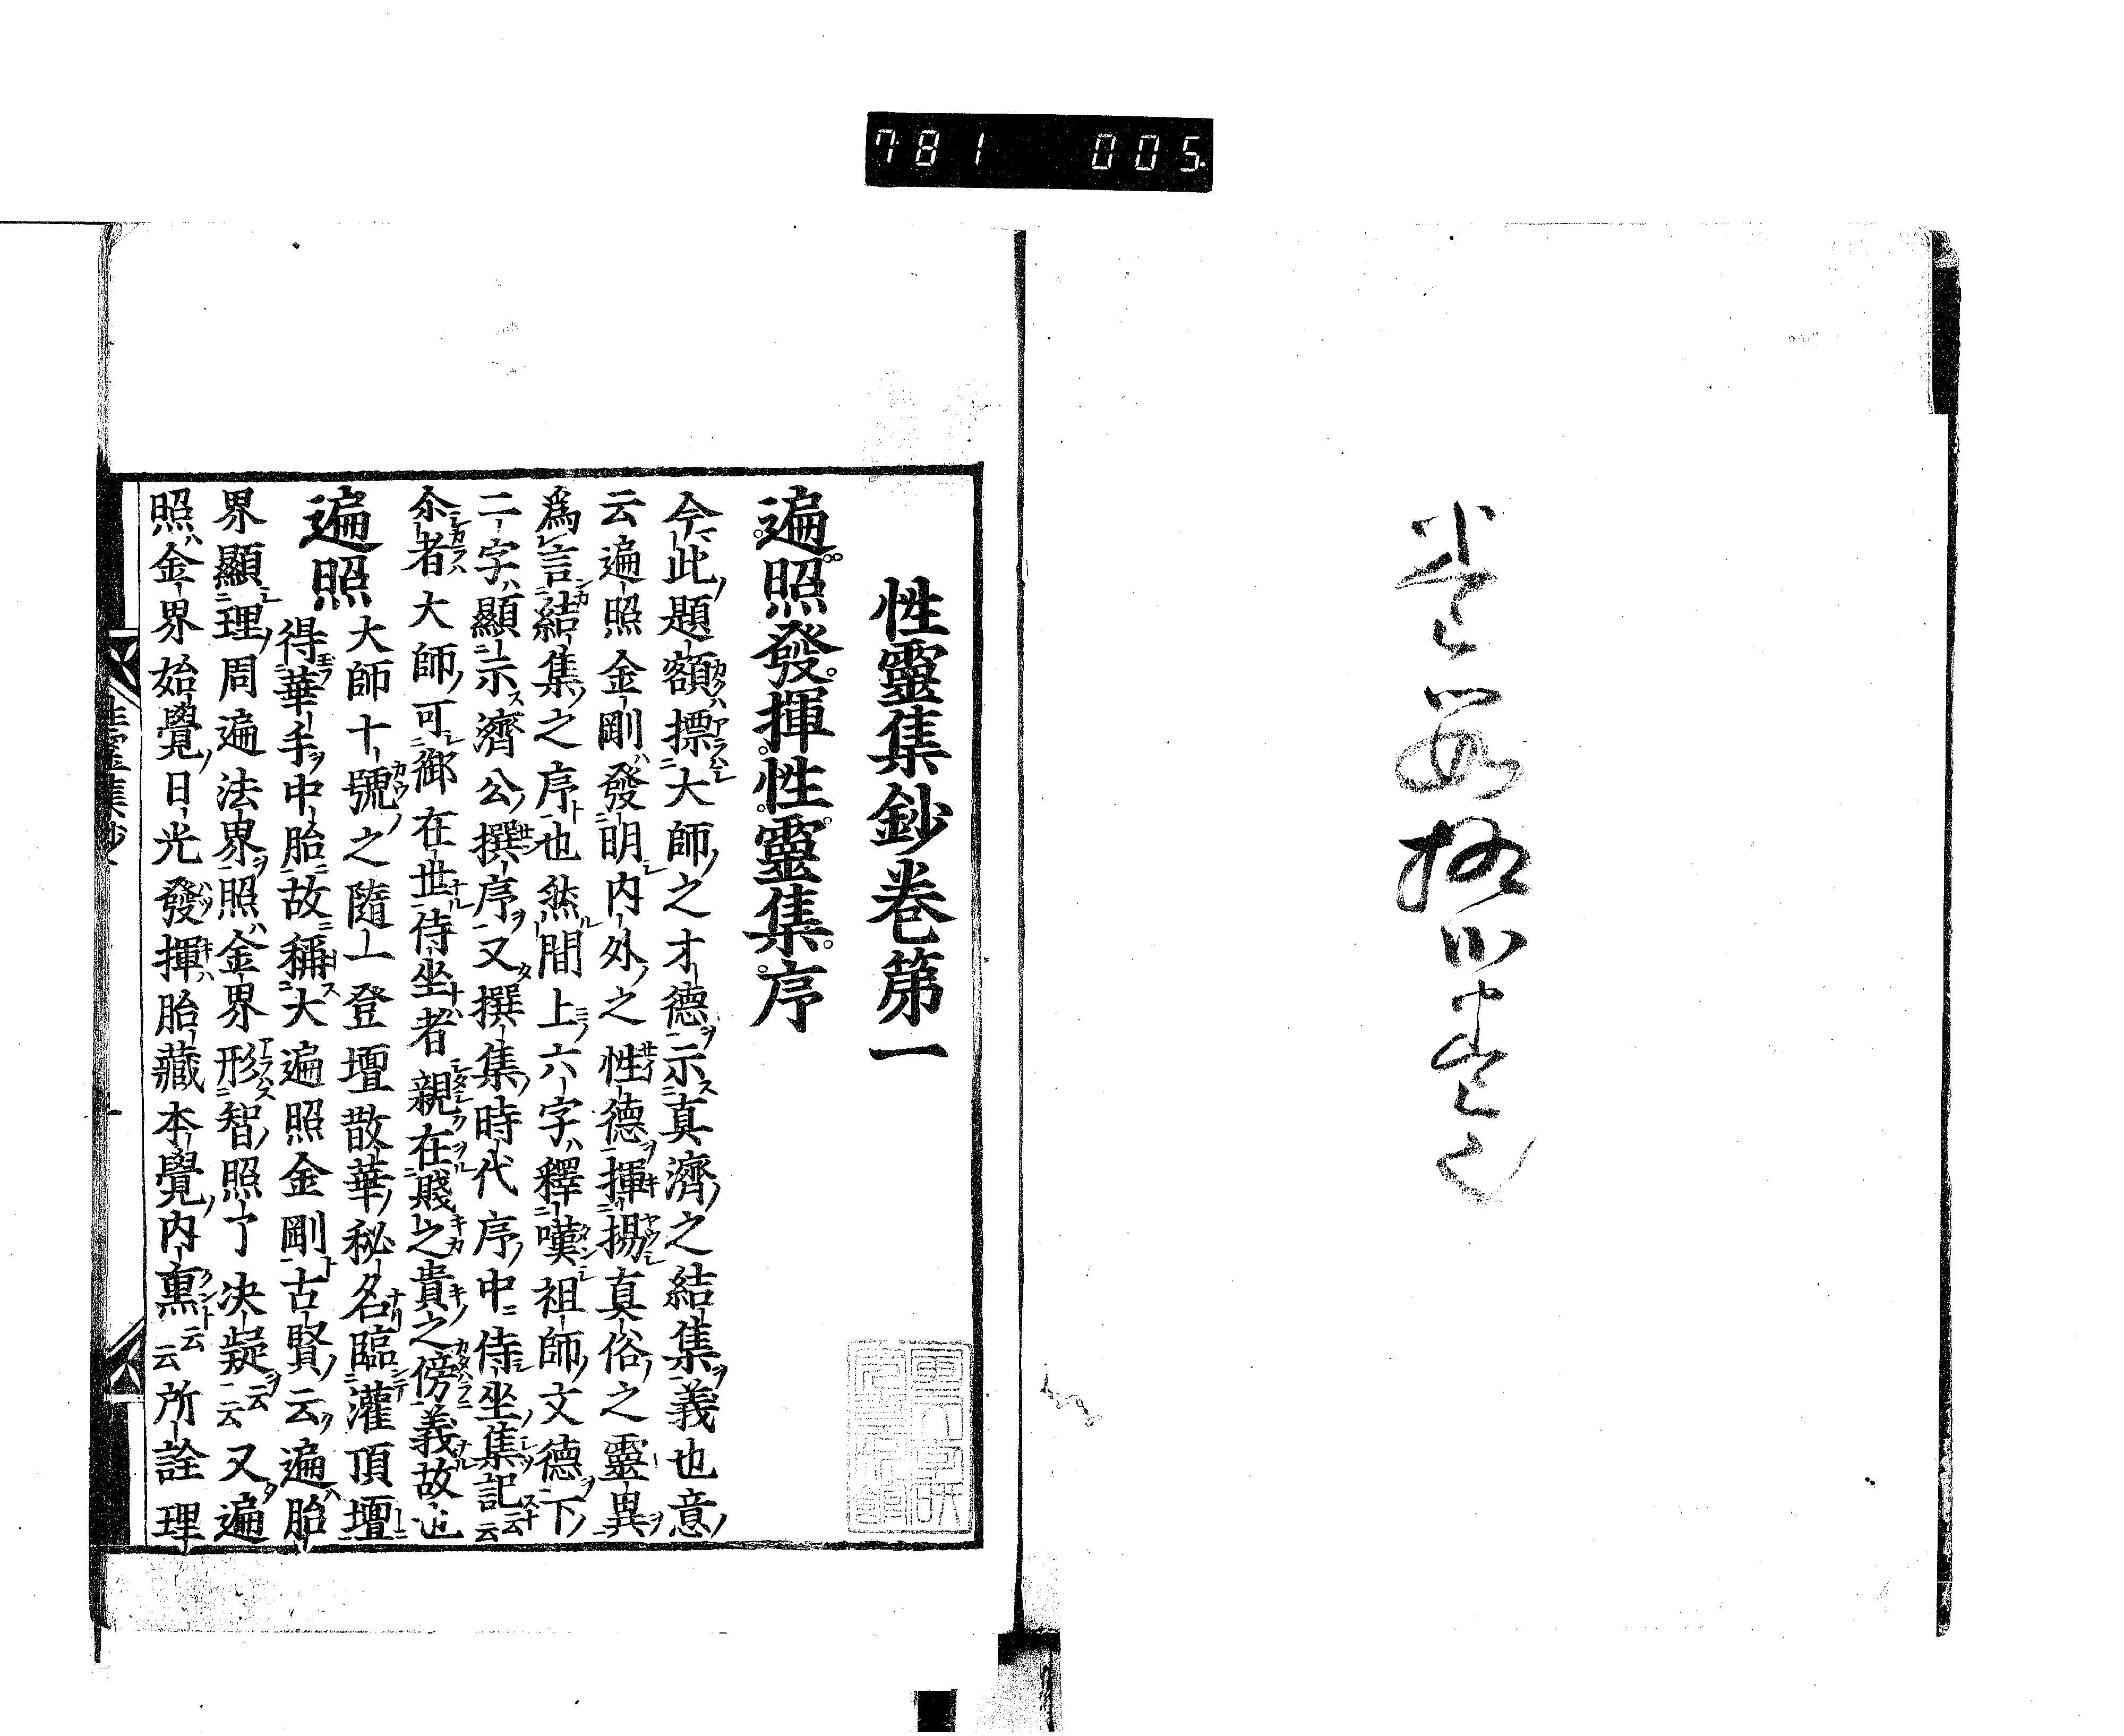 781 005
性靈集鈔卷第一
遍照發揮性靈集序
今此題額摽大師之才德示真濟之結集義也意
云遍照金剛發明内外之性德揮揚真俗之靈異
爲言結集之序也然間上六字釋嘆祖師文德下
二字顯示濟公撰序又撰集時代序中侍坐集記云云
尒者大師可御在世侍坐者親在賤之貴之傍義故也
遍照
大師十號之隨一登壇散華秘名臨灌頂壇
得華手中胎故稱大遍照金剛古賢云遍胎
界顯理周遍法界照金界形智照了决疑云云又遍
照金界始覺日光發揮胎藏本覺内熏云云所詮理
性靈集鈔
一